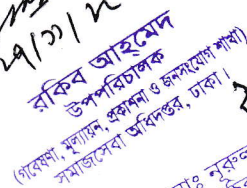 ২৭/১১/১
রকিব আহমেদ
উপপরিচালক
(গবেষণা, মূল্যায়ন, প্রকাশনা ও জনসংযোগ শাখা)
সমাজসেবা অধিদপ্তর, ঢাকা।